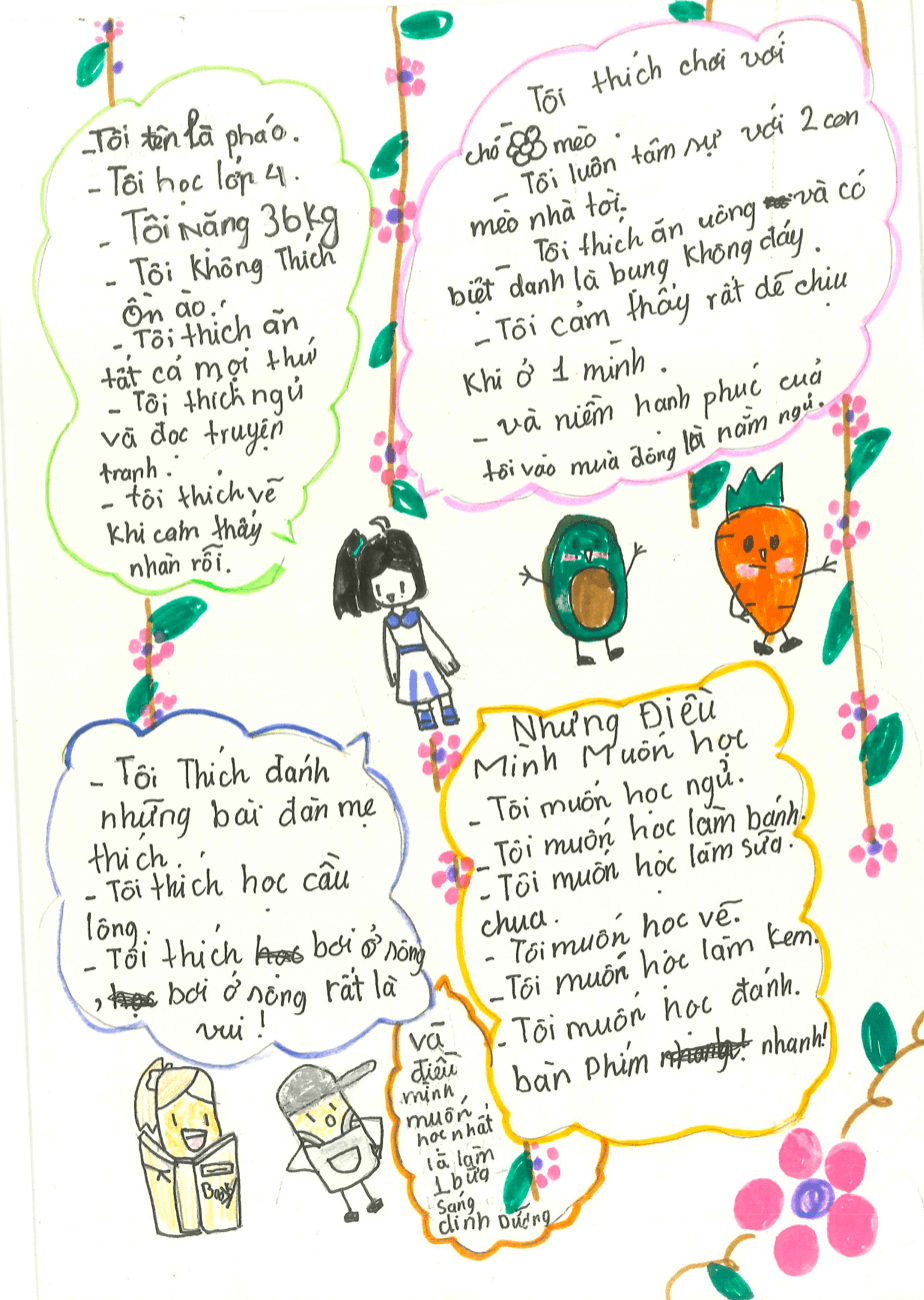 -Tôi tên là pháo.
- Tôi học lớp 4.
- Tôi Năng 36kg
- Tôi Không Thích
Ồn ào.
- Tôi thich ăn
tất cá mọi thứ
- Tôi thích ngủ
và đọc truyện
tranh.
- tôi thích vẽ
Khi cam thấy
nhàn rỗi.
Tôi thích chơi với
chó mèo.
- Tôi luôn tâm sự với 2 con
mèo nhà tôi.
- Tôi thích ăn uông và có
biệt danh là bụng không đáy.
- Tôi cảm thấy rất dễ chịu
Khi ở 1 mình.
- và niềm hạnh phúc cuả
tôi vào muà đông là nằm ngủ.
- Tôi Thích đánh
những bài đàn mẹ
thích.
- Tôi thích học cầu
lông.
- Tôi thích bơi ở sông
, bơi ở sông rất là
vui!
Nhưng Điều
Mình Muốn học
- Tôi muốn học ngủ.
- Tôi muốn học làm bánh.
- Tôi muốn học làm sữa.
chua.
- Tôi muốn học vẽ.
- Tôi muốn học làm kem.
- Tôi muốn học đánh.
bàn Phím nhanh!
và
điều
mình
muốn
học nhất
là làm
1 bữa
sáng
dinh Dưỡng
Book